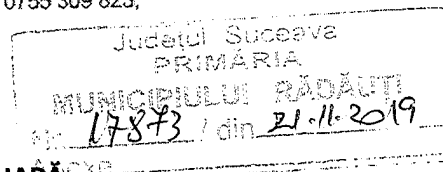 0755 309 823,
Județul Suceava
PRIMĂRIA
MUNICIPIULUI RĂDĂUȚI
Nr. 17873 / din 21.11.2019